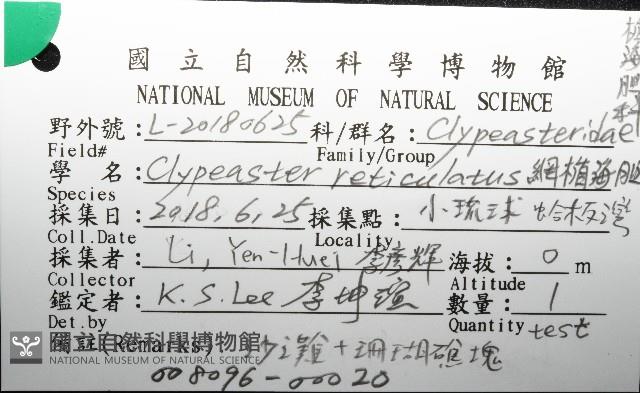 國立自然科學博物館
NATIONAL MUSEUM OF NATURAL SCIENCE
海膽科
野外號：L-20180625 科/群名：Clypeasteridae
Field# Family/Group
學 名：Clypeaster reticulatus 網楯海膽
Species
採集日：2018,6,25 採集點：小琉球 蛤板灣
Coll.Date Locality
採集者：Li, Yen-Huei 李彥輝 海拔：0 m
Collector Altitude
鑑定者：K.S.Lee 李坤瑄 數量：1
Det.by Quantity test
國立自然科學博物館 (Remarks) 沙灘+珊瑚礁塊
NATIONAL MUSEUM OF NATURAL SCIENCE
008096-00020